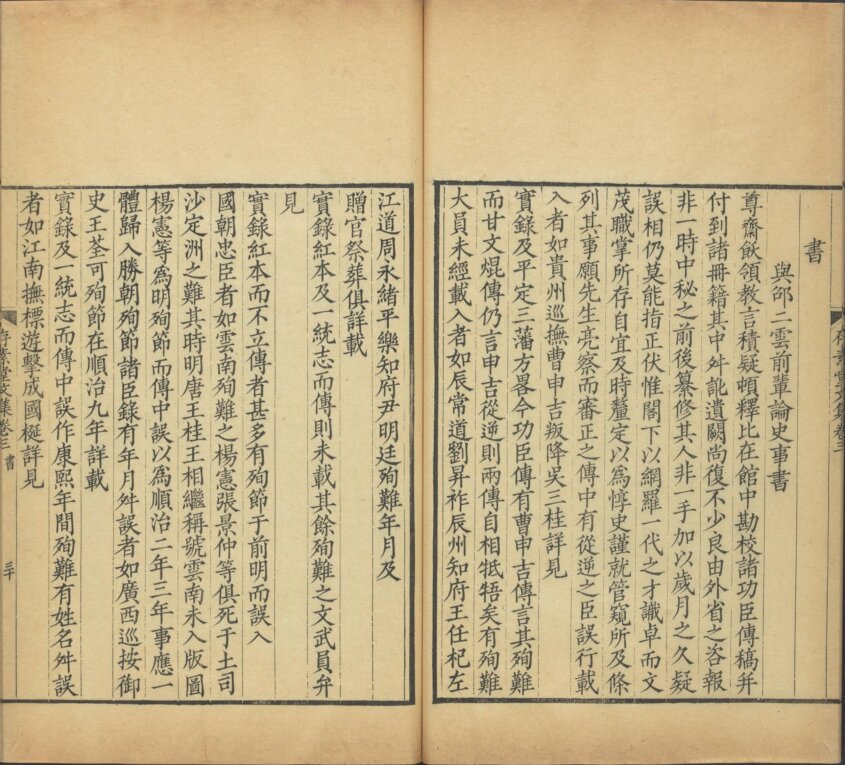 書
與邵二雲前輩論史事書
尊齋飫領敎言積疑頓釋比在館中勘校諸功臣傳稿并
付到諸冊籍其中舛訛遺闕尚復不少良由外省之咨報
非一時中秘之前後纂修其人非一手加以歲月之久疑
誤相仍莫能指正伏惟閣下以網羅一代之才識卓而文
茂職掌所存自宜及時釐定以爲惇史謹就管窺所及條
列其事願先生亮察而審正之傳中有從逆之臣誤行載
入者如貴州巡撫曹申吉叛降吳三桂詳見
實錄及平定三藩方畧今功臣傳有曹申吉傳言其殉難
而甘文焜傳仍言申吉從逆則兩傳自相牴牾矣有殉難
大員未經載入者如辰常道劉昇祚辰州知府王任杞左
江道周永緒平樂知府尹明廷殉難年月及
贈官祭葬俱詳載
實錄紅本及一統志而傳則未載其餘殉難之文武員弁
見
實錄紅本而不立傳者甚多有殉節于前明而誤入
國朝忠臣者如雲南殉難之楊憲張景仲等俱死于土司
沙定洲之難其時明唐王桂王相繼稱號雲南未入版圖
楊憲等爲明殉節而傳中誤以爲順治二年三年事應一
體歸入勝朝殉節諸臣錄有年月舛誤者如廣西巡按御
史王荃可殉節在順治九年詳載
實錄及一統志而傳中誤作康熙年間殉難有姓名舛誤
者如江南撫標遊擊成國梴詳見
存素堂文集卷三 書 三十